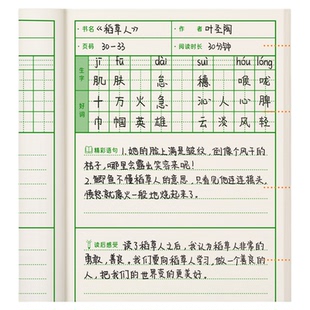 书名 《稻草人》 作者 叶圣陶
页码 30-33 阅读时长 30分钟
jī fū dài suì hóu lóng
生字 肌 肤 怠 穗 喉 咙
好词 十万火急 沁人心脾
巾帼英雄 云淡风轻
精彩语句 1.她的脸上满是皱纹,倒像个风子的
桔子,哪里会露出笑容来呢!
2.鲫鱼不懂稻草人的意思,只看见他连连摇头,
愤怒就像火一般地烧起来了。
读后感受 读了稻草人之后,我认为稻草人非常的
勇敢,善良。我们要向稻草人学习,做一个善良的
人,把我们的世界变的更美好。